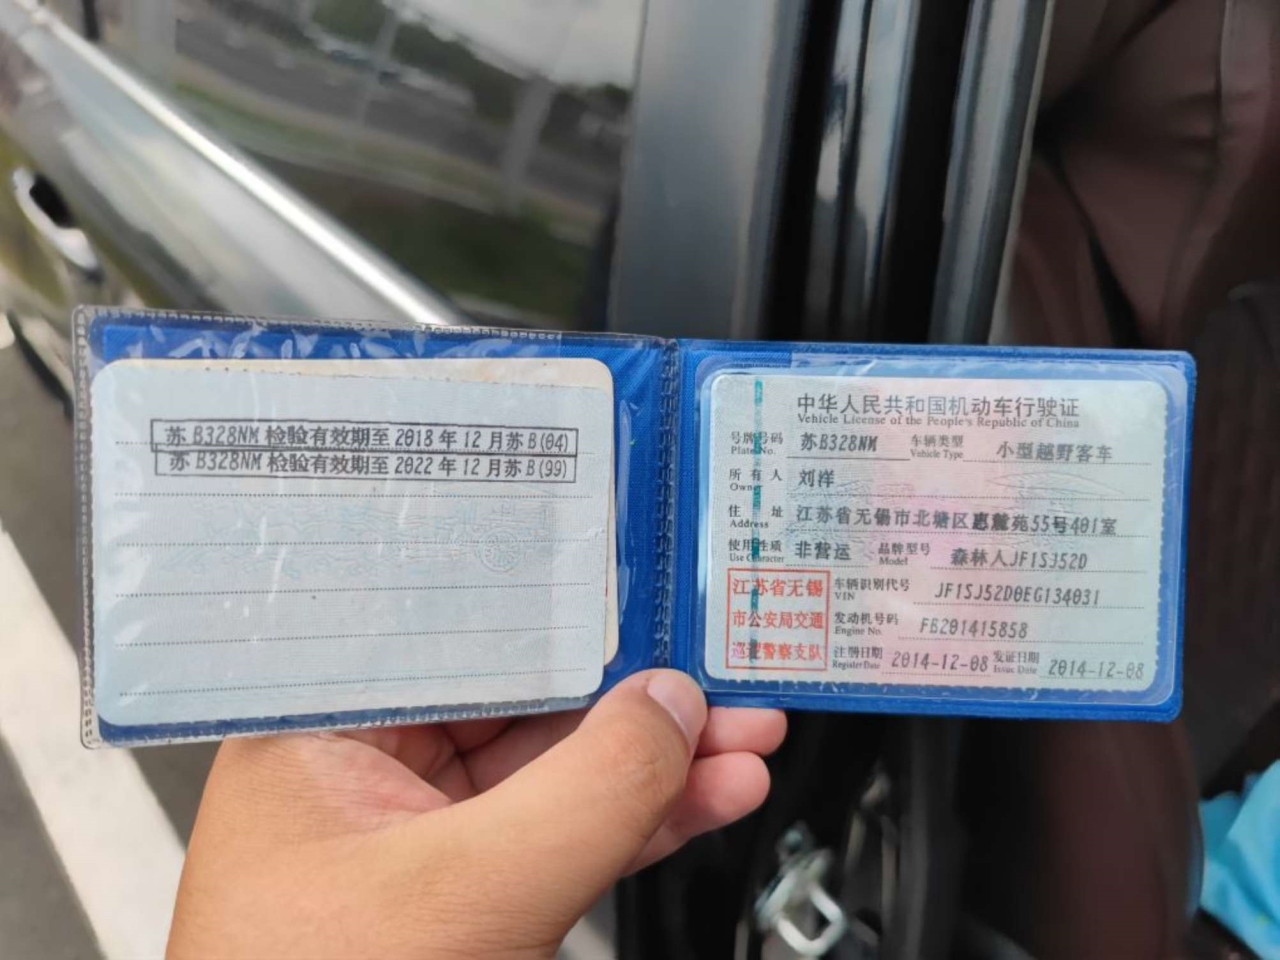 苏B328NM检验有效期至2018年12月苏B(04)
苏B328NM检验有效期至2022年12月苏B(99)
中华人民共和国机动车行驶证
Vehicle License of the People's Republic of China
号牌号码 苏B328NM 车辆类型 小型越野客车
Plate No. Vehicle Type
所有人 刘洋
Owner
住址 江苏省无锡市北塘区惠麓苑55号401室
Address
使用性质 非营运 品牌型号 森林人JF1SJ52D
Use Character Model
江苏省无锡
市公安局交通
巡逻警察支队
车辆识别代号 JF1SJ52D0EG134031
VIN
发动机号码 FB201415858
Engine No.
注册日期 2014-12-08 发证日期 2014-12-08
Register Date Issue Date